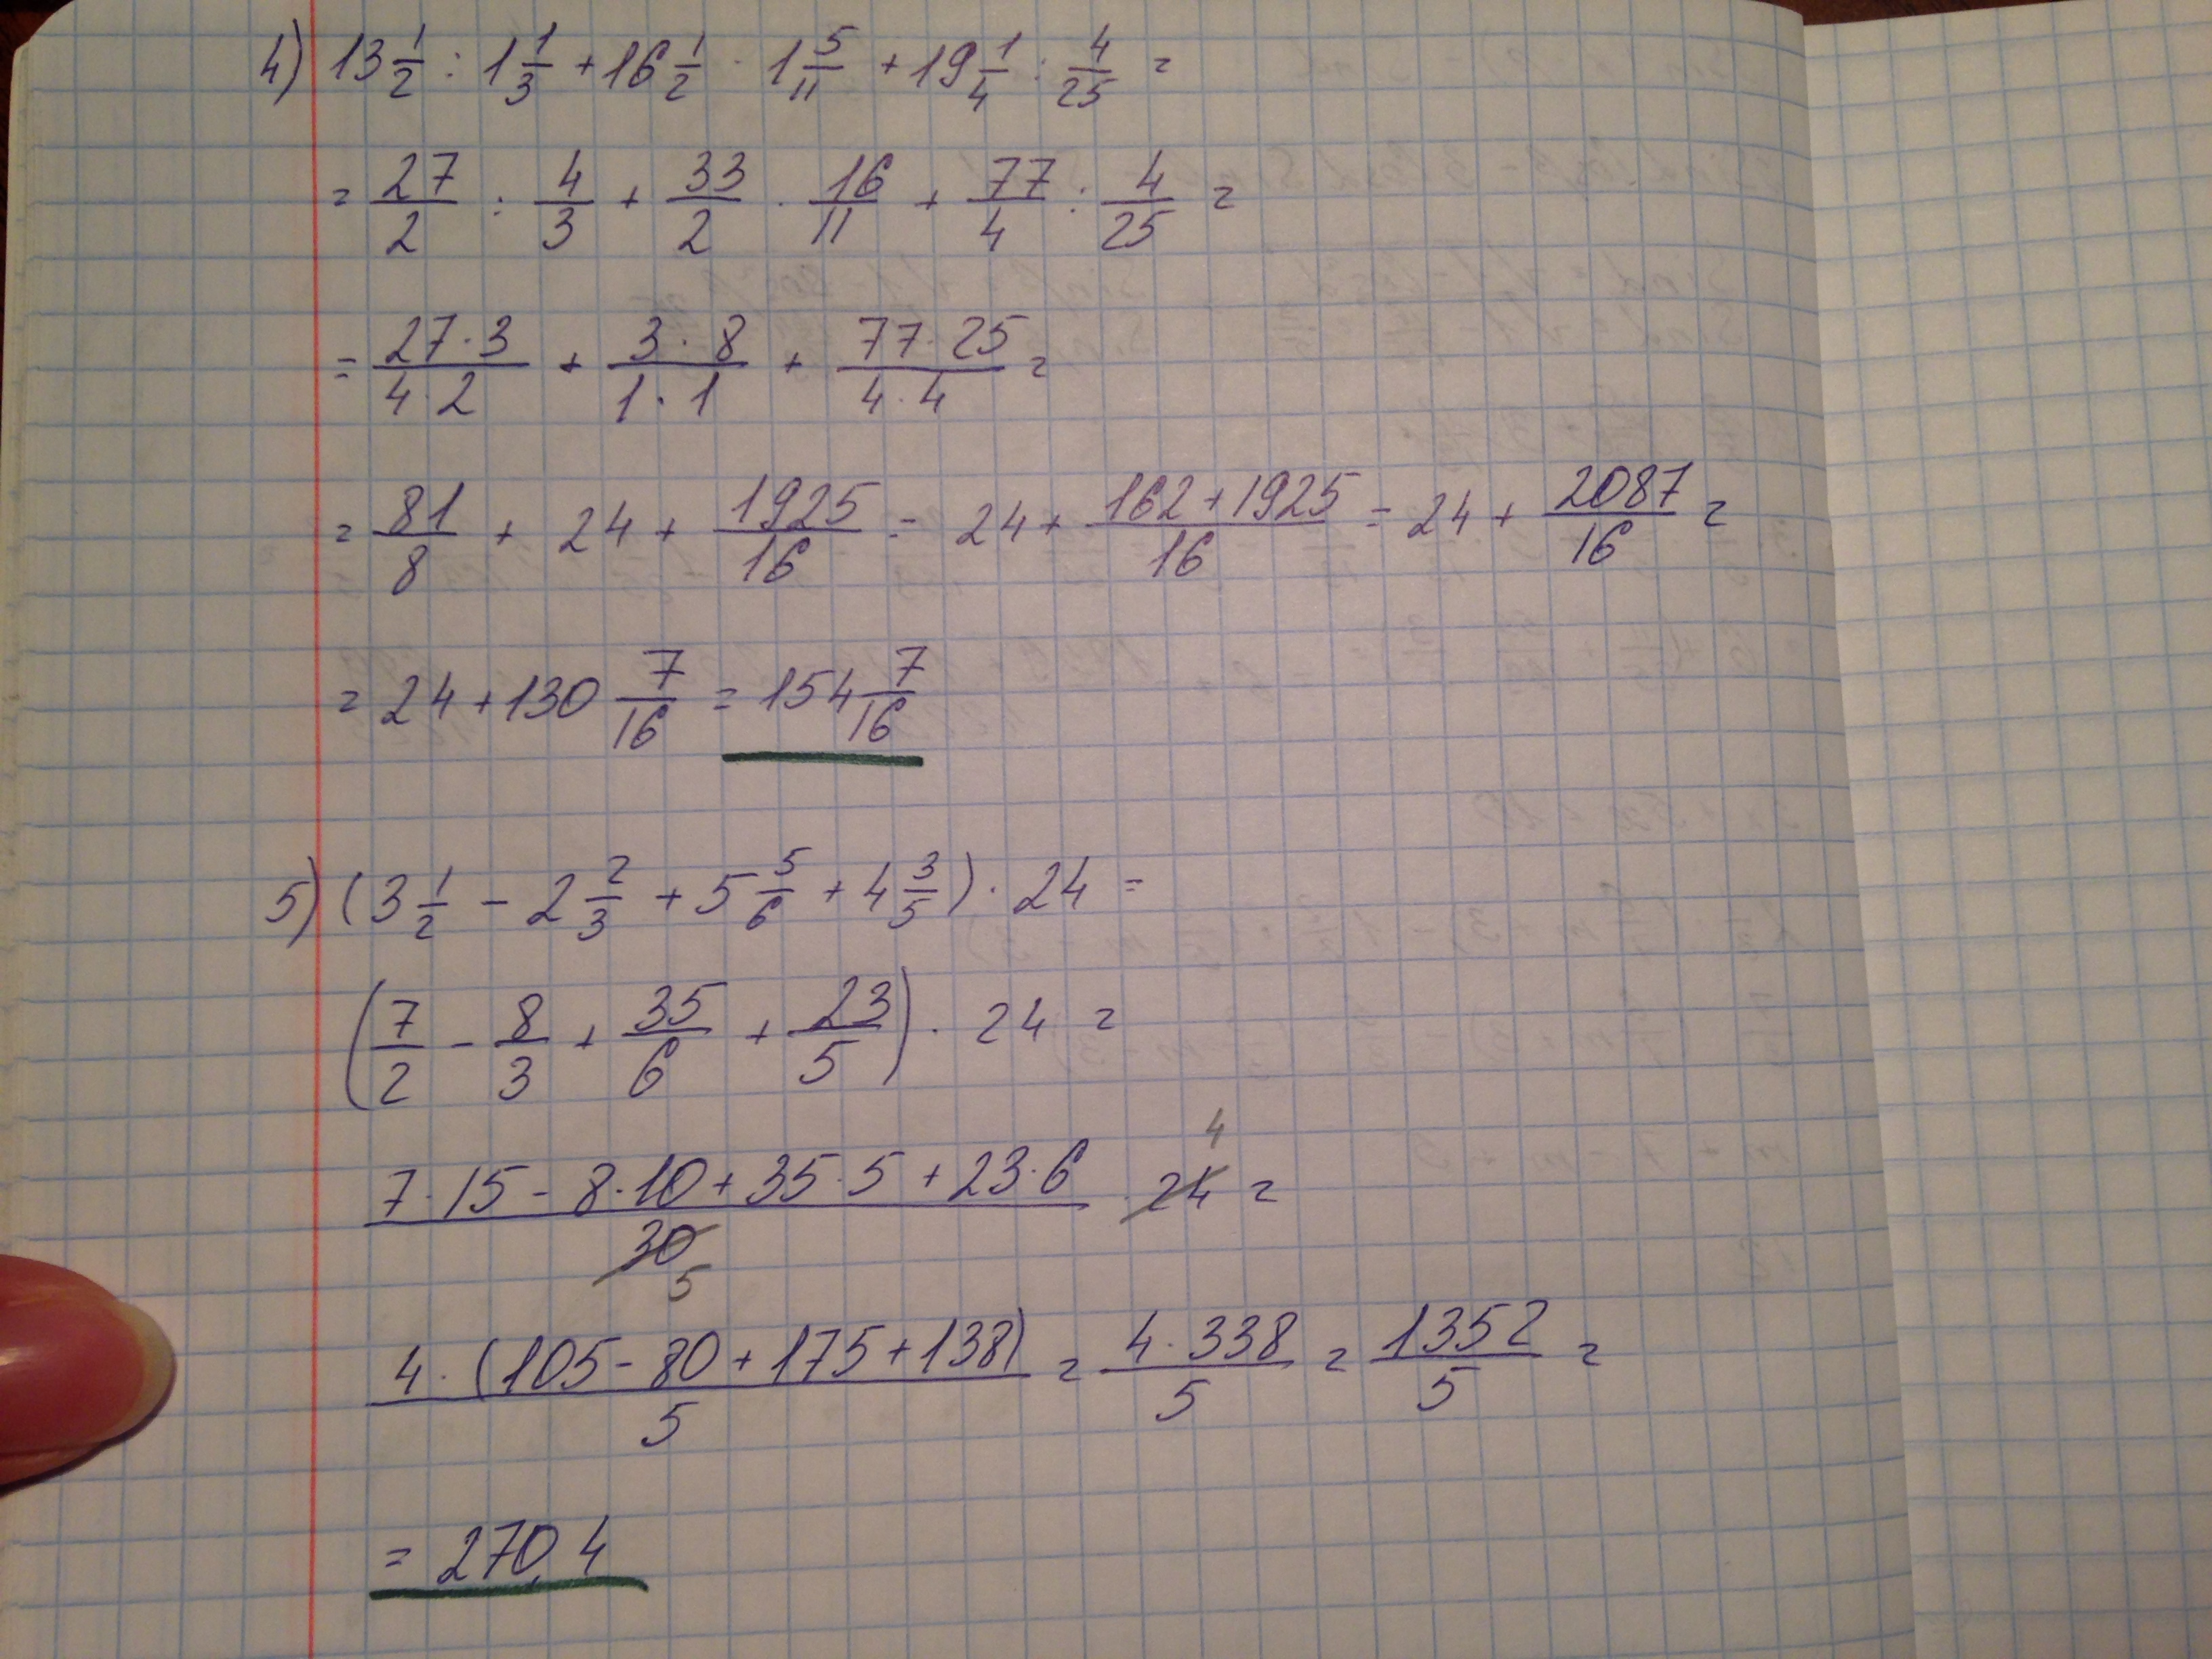 4) 13 1/2 : 1 1/3 + 16 1/2 · 1 5/11 + 19 1/4 : 4/25 =
= 27/2 : 4/3 + 33/2 · 16/11 + 77/4 : 4/25 =
= 27·3/4·2 + 3·8/1·1 + 77·25/4·4 =
= 81/8 + 24 + 1925/16 = 24 + 162+1925/16 = 24 + 2087/16 =
= 24 + 130 7/16 = 154 7/16
5) (3 1/2 - 2 2/3 + 5 5/6 + 4 3/5) · 24 =
(7/2 - 8/3 + 35/6 + 23/5) · 24 =
7·15 - 8·10 + 35·5 + 23·6 / 30 5 · 24 4 =
4·(105 - 80 + 175 + 138)/5 = 4·338/5 = 1352/5 =
= 270,4